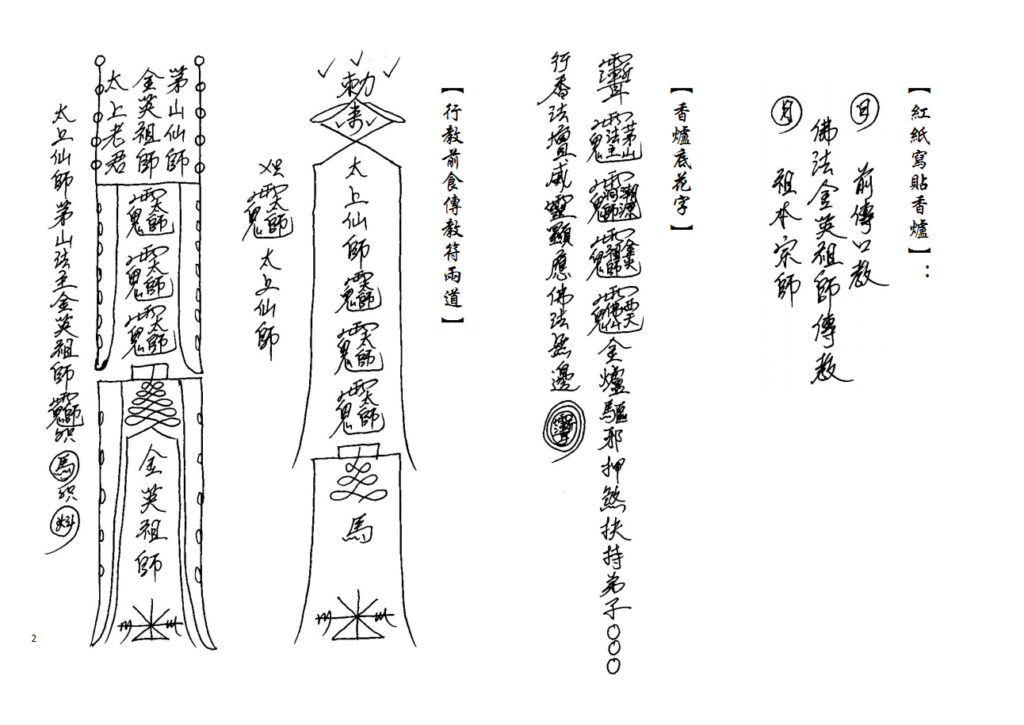 【紅紙寫貼香爐】：
日 前傳口教
佛法金英祖師傳教
月 祖本宗師
【香爐底花字】
茅山 金英 西天 全爐驅邪押煞扶持弟子○○○
行香法壇威靈顯應佛法無邊
【行教前食傳教符兩道】
勅
太上仙師
太師
太師
太師
馬
太師 太上仙師
茅山仙師
金英祖師
太上老君
太師
太師
太師
金英祖師
太上仙師茅山法主金英祖師 馬
2